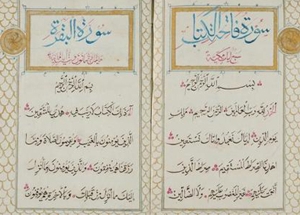 سورة فاتحة الكتاب
بسم الله الرحمن الرحيم
الحمد لله رب العالمين الرحمن الرحيم
يوم الدين اياك نعبد واياك نستعين
اهدنا الصراط المستقيم صراط الذين
انعمت عليهم غير المغضوب عليهم ولا الضالين
سورة البقرة
بسم الله الرحمن الرحيم
الم ذلك الكتاب لا ريب فيه هدى للمتقين
الذين يؤمنون بالغيب ويقيمون الصلوة ومما
رزقناهم ينفقون والذين يؤمنون بما انزل
اليك وما انزل من قبلك وبالاخرة هم يوقنون